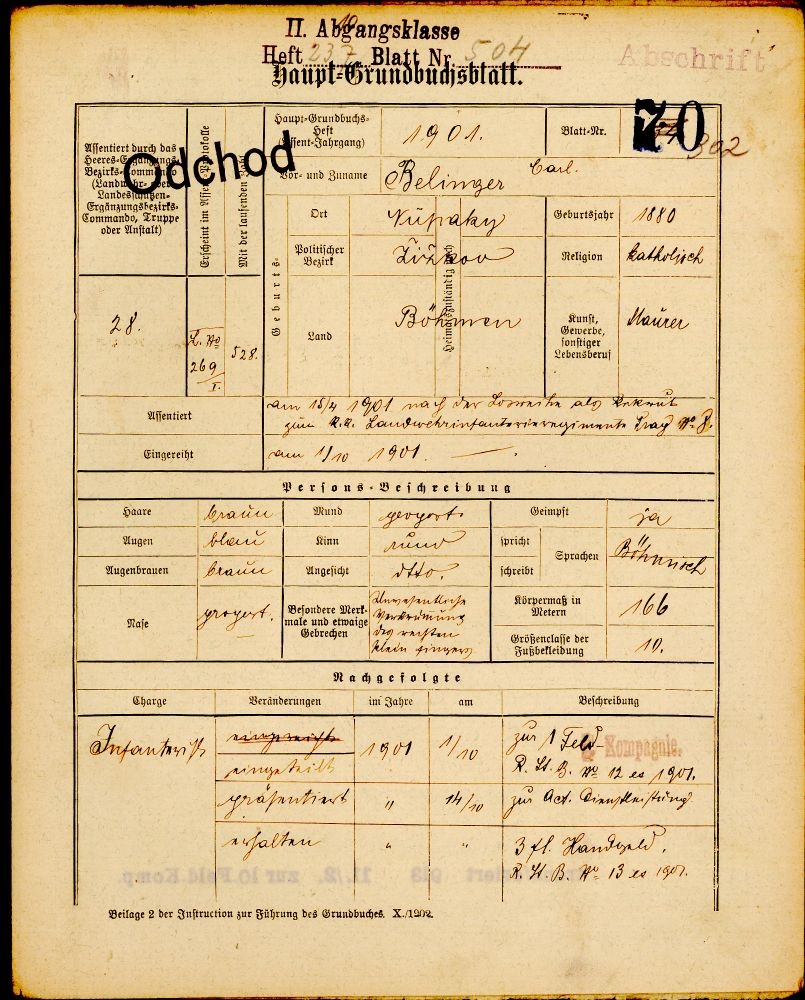 II. Abgangsklasse
10
Heft 237 Blatt Nr. 504
Abschrift
Haupt-Grundbuchsblatt.
Assentiert durch das
Heeres-Ergänzungs-
Bezirks-Commando
(Landwehr- oder
Landesschützen-
Ergänzungsbezirks-
Commando, Truppe
oder Anstalt)
Odchod
Erscheint im Assent-Protokolle
Mit der laufenden Zahl
Haupt-Grundbuchs-
Heft
(Assent-Jahrgang)
1901.
Blatt-Nr.
70
302
Vor- und Zuname
Belinger Carl.
Geburts-
Heimatszuständig nach
Ort
Nupaky
Geburtsjahr
1880
Politischer
Bezirk
Žižkov
Religion
katholisch
Land
Böhmen
Kunst,
Gewerbe,
sonstiger
Lebensberuf
Maurer
28.
L. No
269
I.
528.
Assentiert
am 15/4 1901 nach der Losreihe als Rekrut
zum k.k. Landwehrinfanterieregimente Prag No 8.
Eingereiht
am 1/10 1901.
Persons-Beschreibung
Haare
braun
Mund
proport.
Geimpft
ja
Augen
blau
Kinn
rund
spricht
schreibt
Sprachen
Böhmisch
Augenbrauen
braun
Angesicht
dtto.
Nase
proport.
Besondere Merk-
male und etwaige
Gebrechen
Unwesentliche
Verkrümung
des rechten
klein fingers
Körpermaß in
Metern
166
Größenclasse der
Fußbekleidung
10.
Nachgefolgte
Charge
Veränderungen
im Jahre
am
Beschreibung
Infanterist
eingereiht
eingeteilt
1901
1/10
zur 1 Feld-Kompagnie.
R. St. B. No 12 ex 1901.
präsentiert
"
14/10
zur Act. Dienstleistung
erhalten
"
"
3 fl. Handgeld.
R. St. B. No 13 ex 1901.
Beilage 2 der Instruction zur Führung des Grundbuches. X./1902.